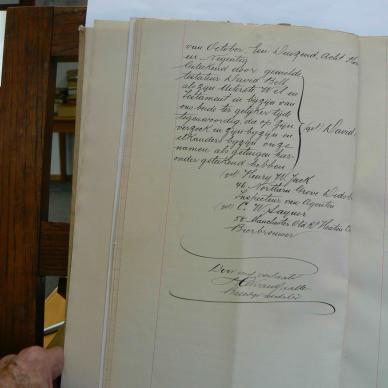 van October Een Duizend, Acht Hon
en Negentig
Geteekend door gemelde
testateur David Bell
als zijn Uiterste Wil en
Testament in bijzijn van
ons beide te gelijker tijd
tegenwoordig, die op zijn
verzoek in zijn bijzijn en
elkanders bijzijn onze
namen als getuigen hier
onder geteekend hebben
(get) David
(get) Henry W. Jack
46 Northern Grove Didsb
Inspecteur van Agenten
(get) C. W. Sayner
58 Manchester Old Rd Heaton
Bierbrouwer
Door mij vertaald
Beëedigd